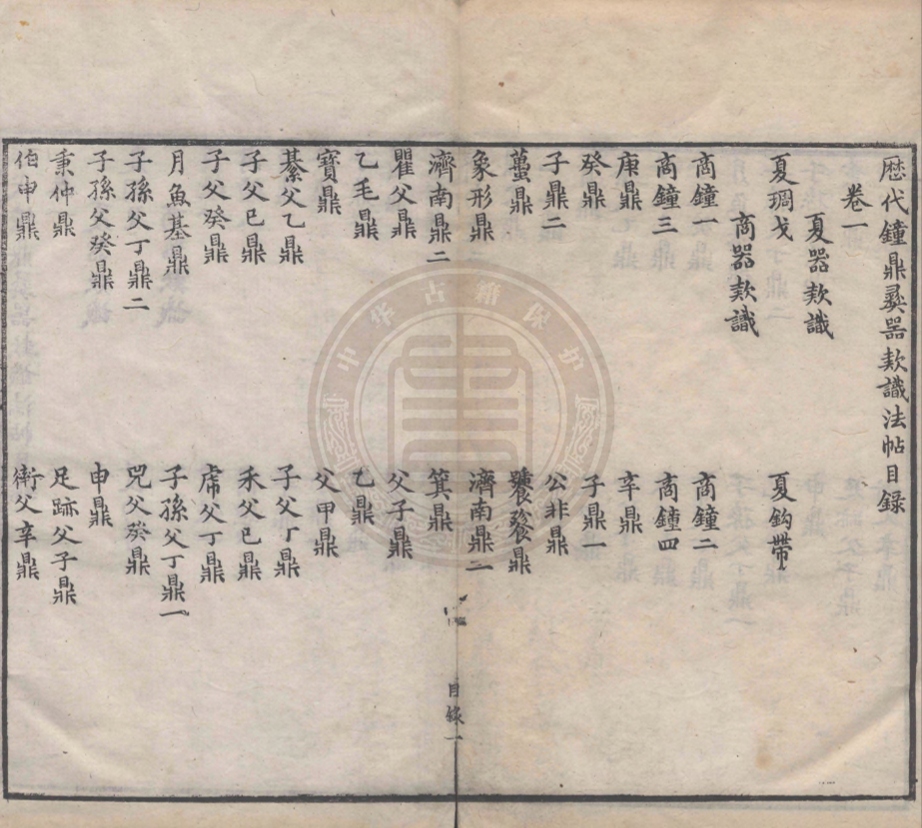 歷代鐘鼎彝器款識法帖目錄
卷一
夏器款識
夏琱戈 夏鈎帶
商器款識
商鐘一 商鐘二
商鐘三 商鐘四
庚鼎 辛鼎
癸鼎 子鼎一
子鼎二 公非鼎
蠆鼎 饕餮鼎
象形鼎 濟南鼎一
濟南鼎二 箕鼎
瞿父鼎 父子鼎
乙毛鼎 乙鼎
寶鼎 父甲鼎
綦父乙鼎 子父丁鼎
子父己鼎 禾父己鼎
子父癸鼎 虎父丁鼎
月魚基鼎 子孫父丁鼎一
子孫父丁鼎二 兕父癸鼎
子孫父癸鼎 申鼎
秉仲鼎 足跡父子鼎
伯申鼎 衛父辛鼎
目錄一
中华古籍保护